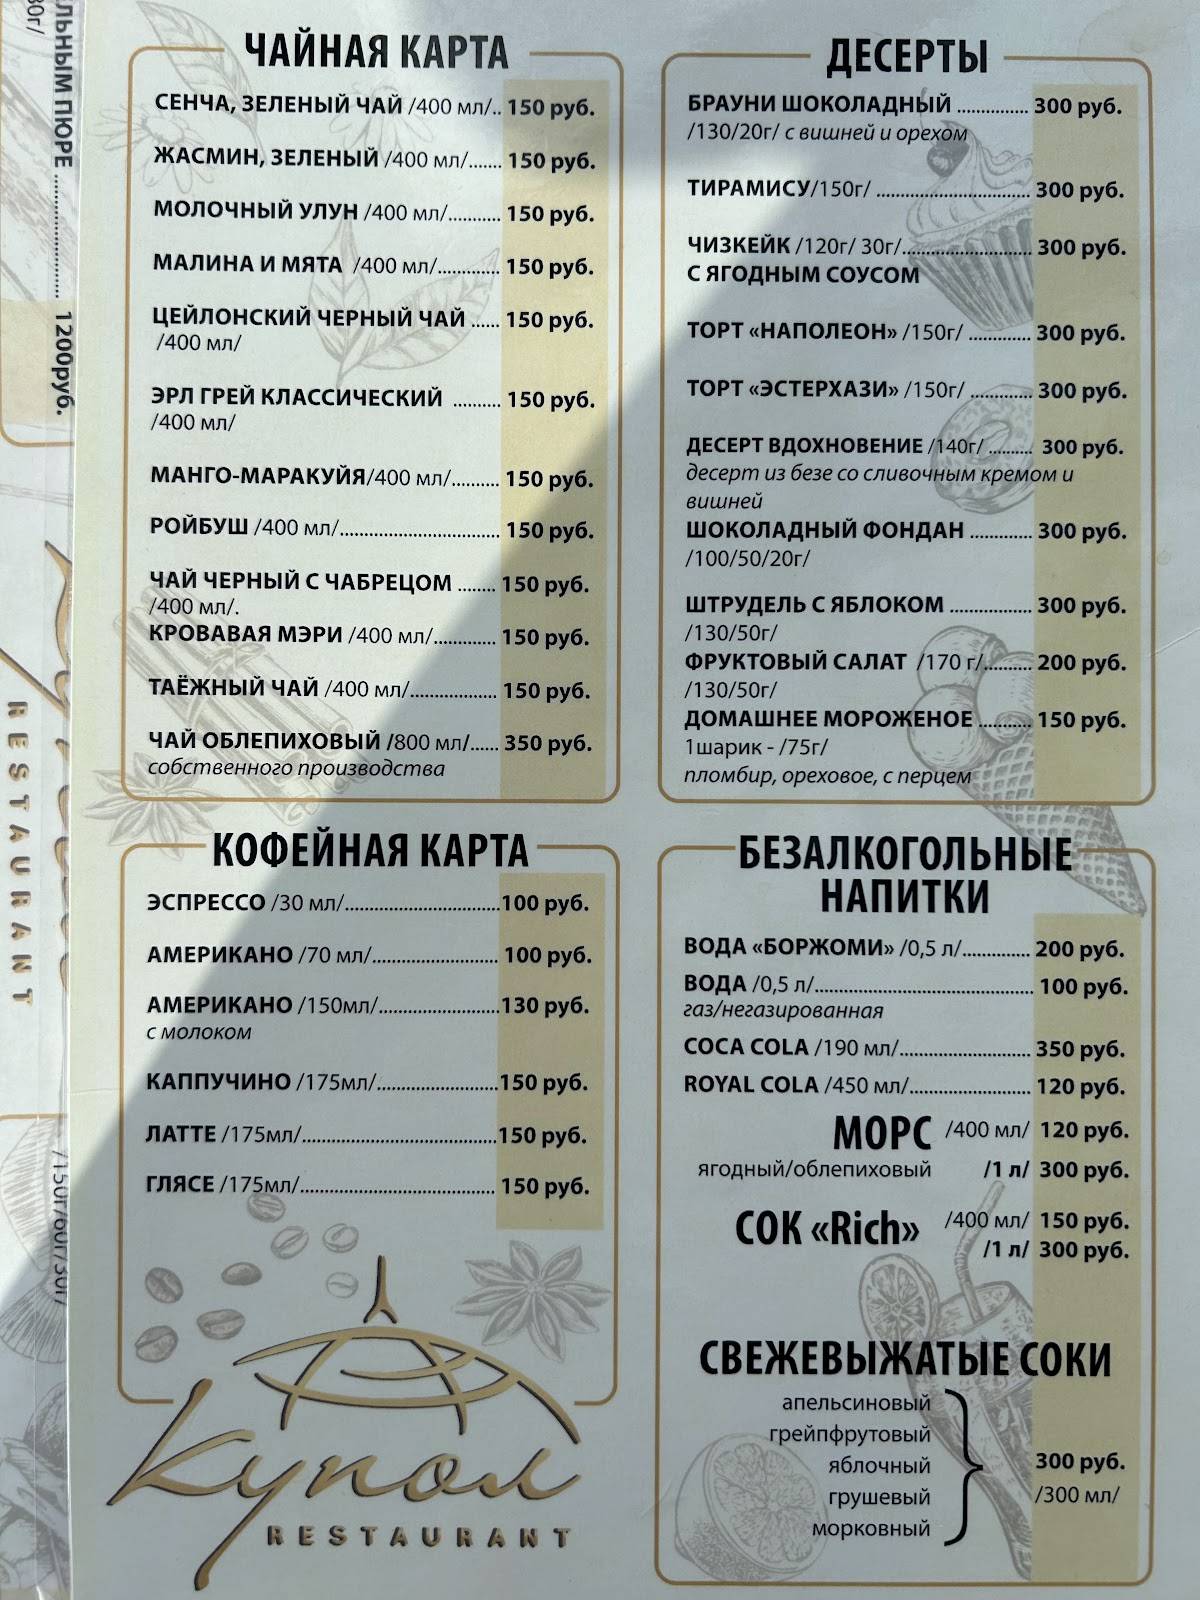 ЛЬНЫМ ПЮРЕ ........................ 1200руб.
30г/
/150г/60г/30г/
RESTAURANT
ЧАЙНАЯ КАРТА
СЕНЧА, ЗЕЛЕНЫЙ ЧАЙ /400 мл/.. 150 руб.
ЖАСМИН, ЗЕЛЕНЫЙ /400 мл/....... 150 руб.
МОЛОЧНЫЙ УЛУН /400 мл/........... 150 руб.
МАЛИНА И МЯТА /400 мл/............. 150 руб.
ЦЕЙЛОНСКИЙ ЧЕРНЫЙ ЧАЙ ...... 150 руб.
/400 мл/
ЭРЛ ГРЕЙ КЛАССИЧЕСКИЙ .......... 150 руб.
/400 мл/
МАНГО-МАРАКУЙЯ/400 мл/.......... 150 руб.
РОЙБУШ /400 мл/................................. 150 руб.
ЧАЙ ЧЕРНЫЙ С ЧАБРЕЦОМ ........ 150 руб.
/400 мл/.
КРОВАВАЯ МЭРИ /400 мл/............. 150 руб.
ТАЁЖНЫЙ ЧАЙ /400 мл/.................. 150 руб.
ЧАЙ ОБЛЕПИХОВЫЙ /800 мл/...... 350 руб.
собственного производства
КОФЕЙНАЯ КАРТА
ЭСПРЕССО /30 мл/................................100 руб.
АМЕРИКАНО /70 мл/.......................... 100 руб.
АМЕРИКАНО /150мл/.........................130 руб.
с молоком
КАППУЧИНО /175мл/.........................150 руб.
ЛАТТЕ /175мл/........................................150 руб.
ГЛЯСЕ /175мл/........................................ 150 руб.
Купол
RESTAURANT
ДЕСЕРТЫ
БРАУНИ ШОКОЛАДНЫЙ ............... 300 руб.
/130/20г/ с вишней и орехом
ТИРАМИСУ/150г/ ................................ 300 руб.
ЧИЗКЕЙК /120г/ 30г/........................... 300 руб.
С ЯГОДНЫМ СОУСОМ
ТОРТ «НАПОЛЕОН» /150г/ ............. 300 руб.
ТОРТ «ЭСТЕРХАЗИ» /150г/ ............... 300 руб.
ДЕСЕРТ ВДОХНОВЕНИЕ /140г/ .......... 300 руб.
десерт из безе со сливочным кремом и
вишней
ШОКОЛАДНЫЙ ФОНДАН ............. 300 руб.
/100/50/20г/
ШТРУДЕЛЬ С ЯБЛОКОМ ................. 300 руб.
/130/50г/
ФРУКТОВЫЙ САЛАТ /170 г/.......... 200 руб.
/130/50г/
ДОМАШНЕЕ МОРОЖЕНОЕ ........... 150 руб.
1шарик - /75г/
пломбир, ореховое, с перцем
БЕЗАЛКОГОЛЬНЫЕ
НАПИТКИ
ВОДА «БОРЖОМИ» /0,5 л/.............. 200 руб.
ВОДА /0,5 л/............................................. 100 руб.
газ/негазированная
COCA COLA /190 мл/........................... 350 руб.
ROYAL COLA /450 мл/......................... 120 руб.
МОРС /400 мл/ 120 руб.
ягодный/облепиховый /1 л/ 300 руб.
СОК «Rich» /400 мл/ 150 руб.
/1 л/ 300 руб.
СВЕЖЕВЫЖАТЫЕ СОКИ
апельсиновый
грейпфрутовый
яблочный
грушевый
морковный
300 руб.
/300 мл/